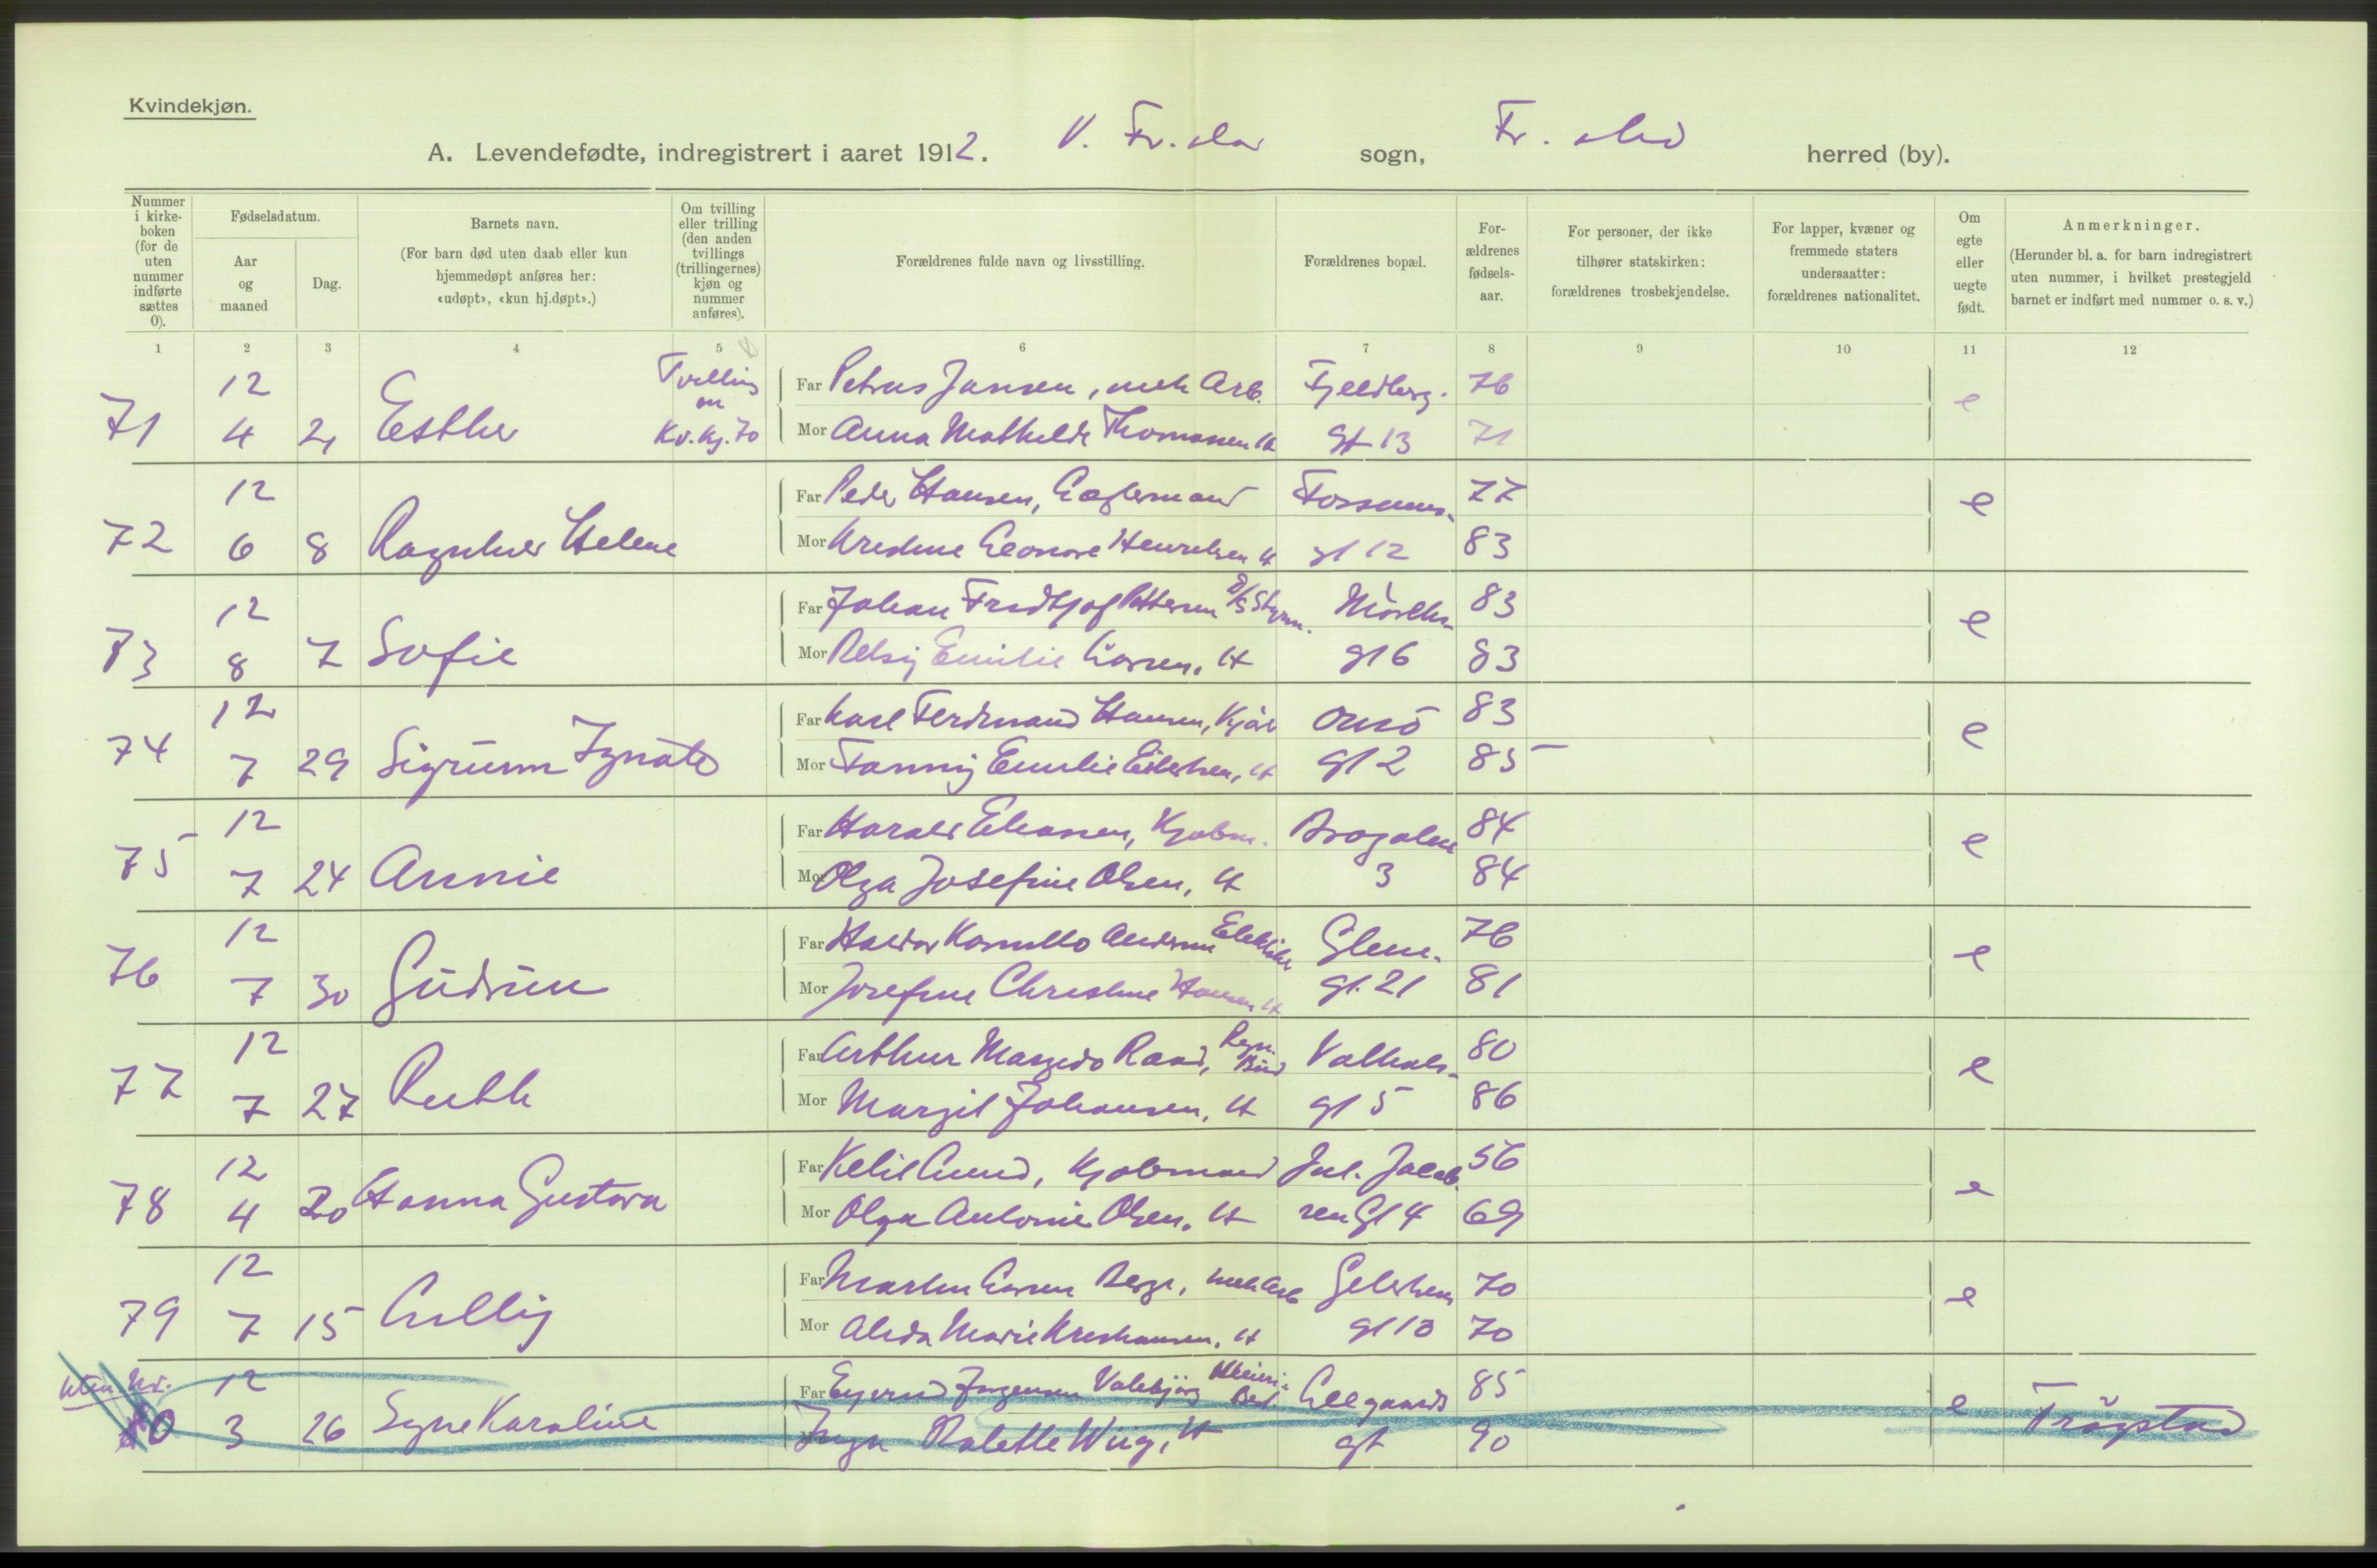 Kvindekjøn.
A. Levendefødte, indregistrert i aaret 1912. V. Fr.stad sogn, Fr.stad herred (by).
Nummer i kirke-boken (for de uten nummer indførte sættes 0).
Fødselsdatum.
Aar og maaned
Dag.
Barnets navn.
(For barn død uten daab eller kun hjemmedøpt anføres her: «udøpt», «kun hj.døpt».)
Om tvilling eller trilling (den anden tvillings (trillingernes) kjøn og nummer anføres).
Forældrenes fulde navn og livsstilling.
Forældrenes bopæl.
For-ældrenes fødsels-aar.
For personer, der ikke tilhører statskirken: forældrenes trosbekjendelse.
For lapper, kvæner og fremmede staters undersaatter: forældrenes nationalitet.
Om egte eller uegte født.
Anmerkninger.
(Herunder bl. a. for barn indregistrert uten nummer, i hvilket prestegjeld barnet er indført med nummer o. s. v.)
1 2 3 4 5 6 7 8 9 10 11 12
12 Tvilling Far Petrus Jansen, mek Arb. Fjeldberg. 76 e
71 4 2 Esther Kv.kj. 70 Mor Anna Mathilde Thomassen H gt 13 71
12 Far Peder Hansen, Lagermand Fossums- 77 e
72 6 8 Ragnhild Helene Mor Kristine Leonore Henriksen H gt 12 83
12 Far Johan Fridtjof Pettersen D/S Styrm. 83 e
73 8 7 Sofie Mor Betsy Emilie Larsen, H gt 6 83
12 Far Karl Ferdinand Hansen, Onsø 83 e
74 7 29 Sigrunn Mor Fanny Emilie H gt 2 85
12 Far Harald Eliassen, Kjøbm. 84 e
75 7 24 Annie Mor Olga Josefine Olsen, H 3 84
12 Far Andersen Glem. 76 e
76 7 30 Gudrun Mor Josefine Christine Hansen H gt. 21 81
12 Far Arthur Raad, Valhals- 80 e
77 7 27 Ruth Mor Margit Johansen, H gt 5 86
12 Far Ketil Lund, Kjøbmand Jul. Jacob 56 e
78 4 20 Hanna Gustava Mor Olga Antonie Olsen, H sen Gt 4 69
12 Far Martin Larsen Berge, mek Arb 70 e
79 7 15 Lilly Mor Alida Marie Kristiansen, H gt 13 70
uten Nr. 12 Far Jørgensen Meieri- Best. 85 e Trøgstad
80 3 26 Signe Karoline Mor Inga Wiig, H gt 90